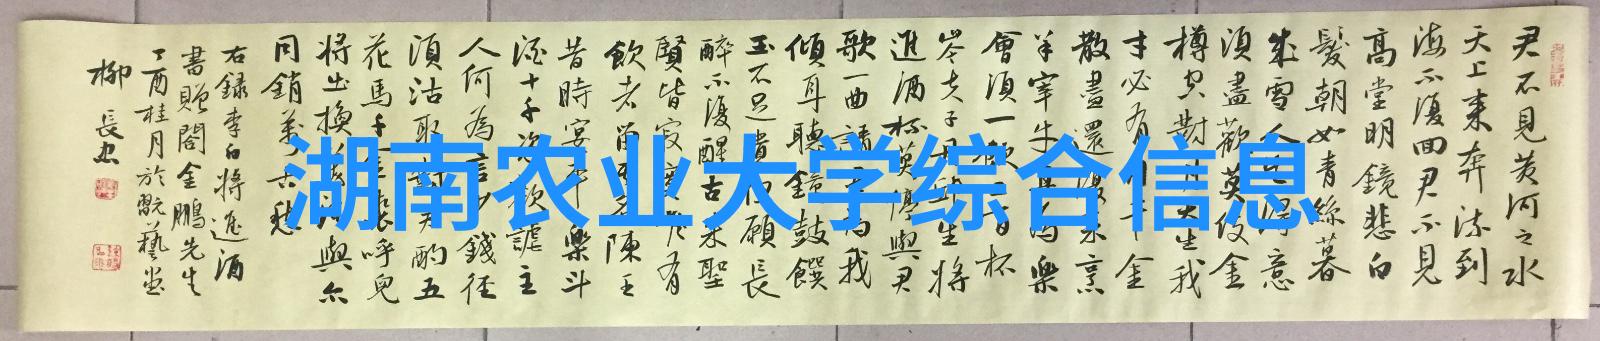 君不見黃河之水
天上來奔流到
海不復回君不見
高堂明鏡悲白
髮朝如青絲暮
成雪人生得意
須盡歡莫使金
樽空對月天生我
才必有用千金
散盡還復來烹
羊宰牛且為樂
會須一飲三百杯
岑夫子丹丘生將
進酒杯莫停與君
歌一曲請君為我
傾耳聽鐘鼓饌
玉不足貴但願長
醉不復醒古來聖
賢皆寂寞惟有
飲者留其名陳王
昔時宴平樂斗
酒十千恣歡謔主
人何為言少錢徑
須沽取對君酌五
花馬千金裘呼兒
將出換美酒與尔
同銷萬古愁
右錄李白將進酒
書贈閻金鵬先生
丁酉桂月於翫藝堂
柳長忠
湖南农业大学综合信息